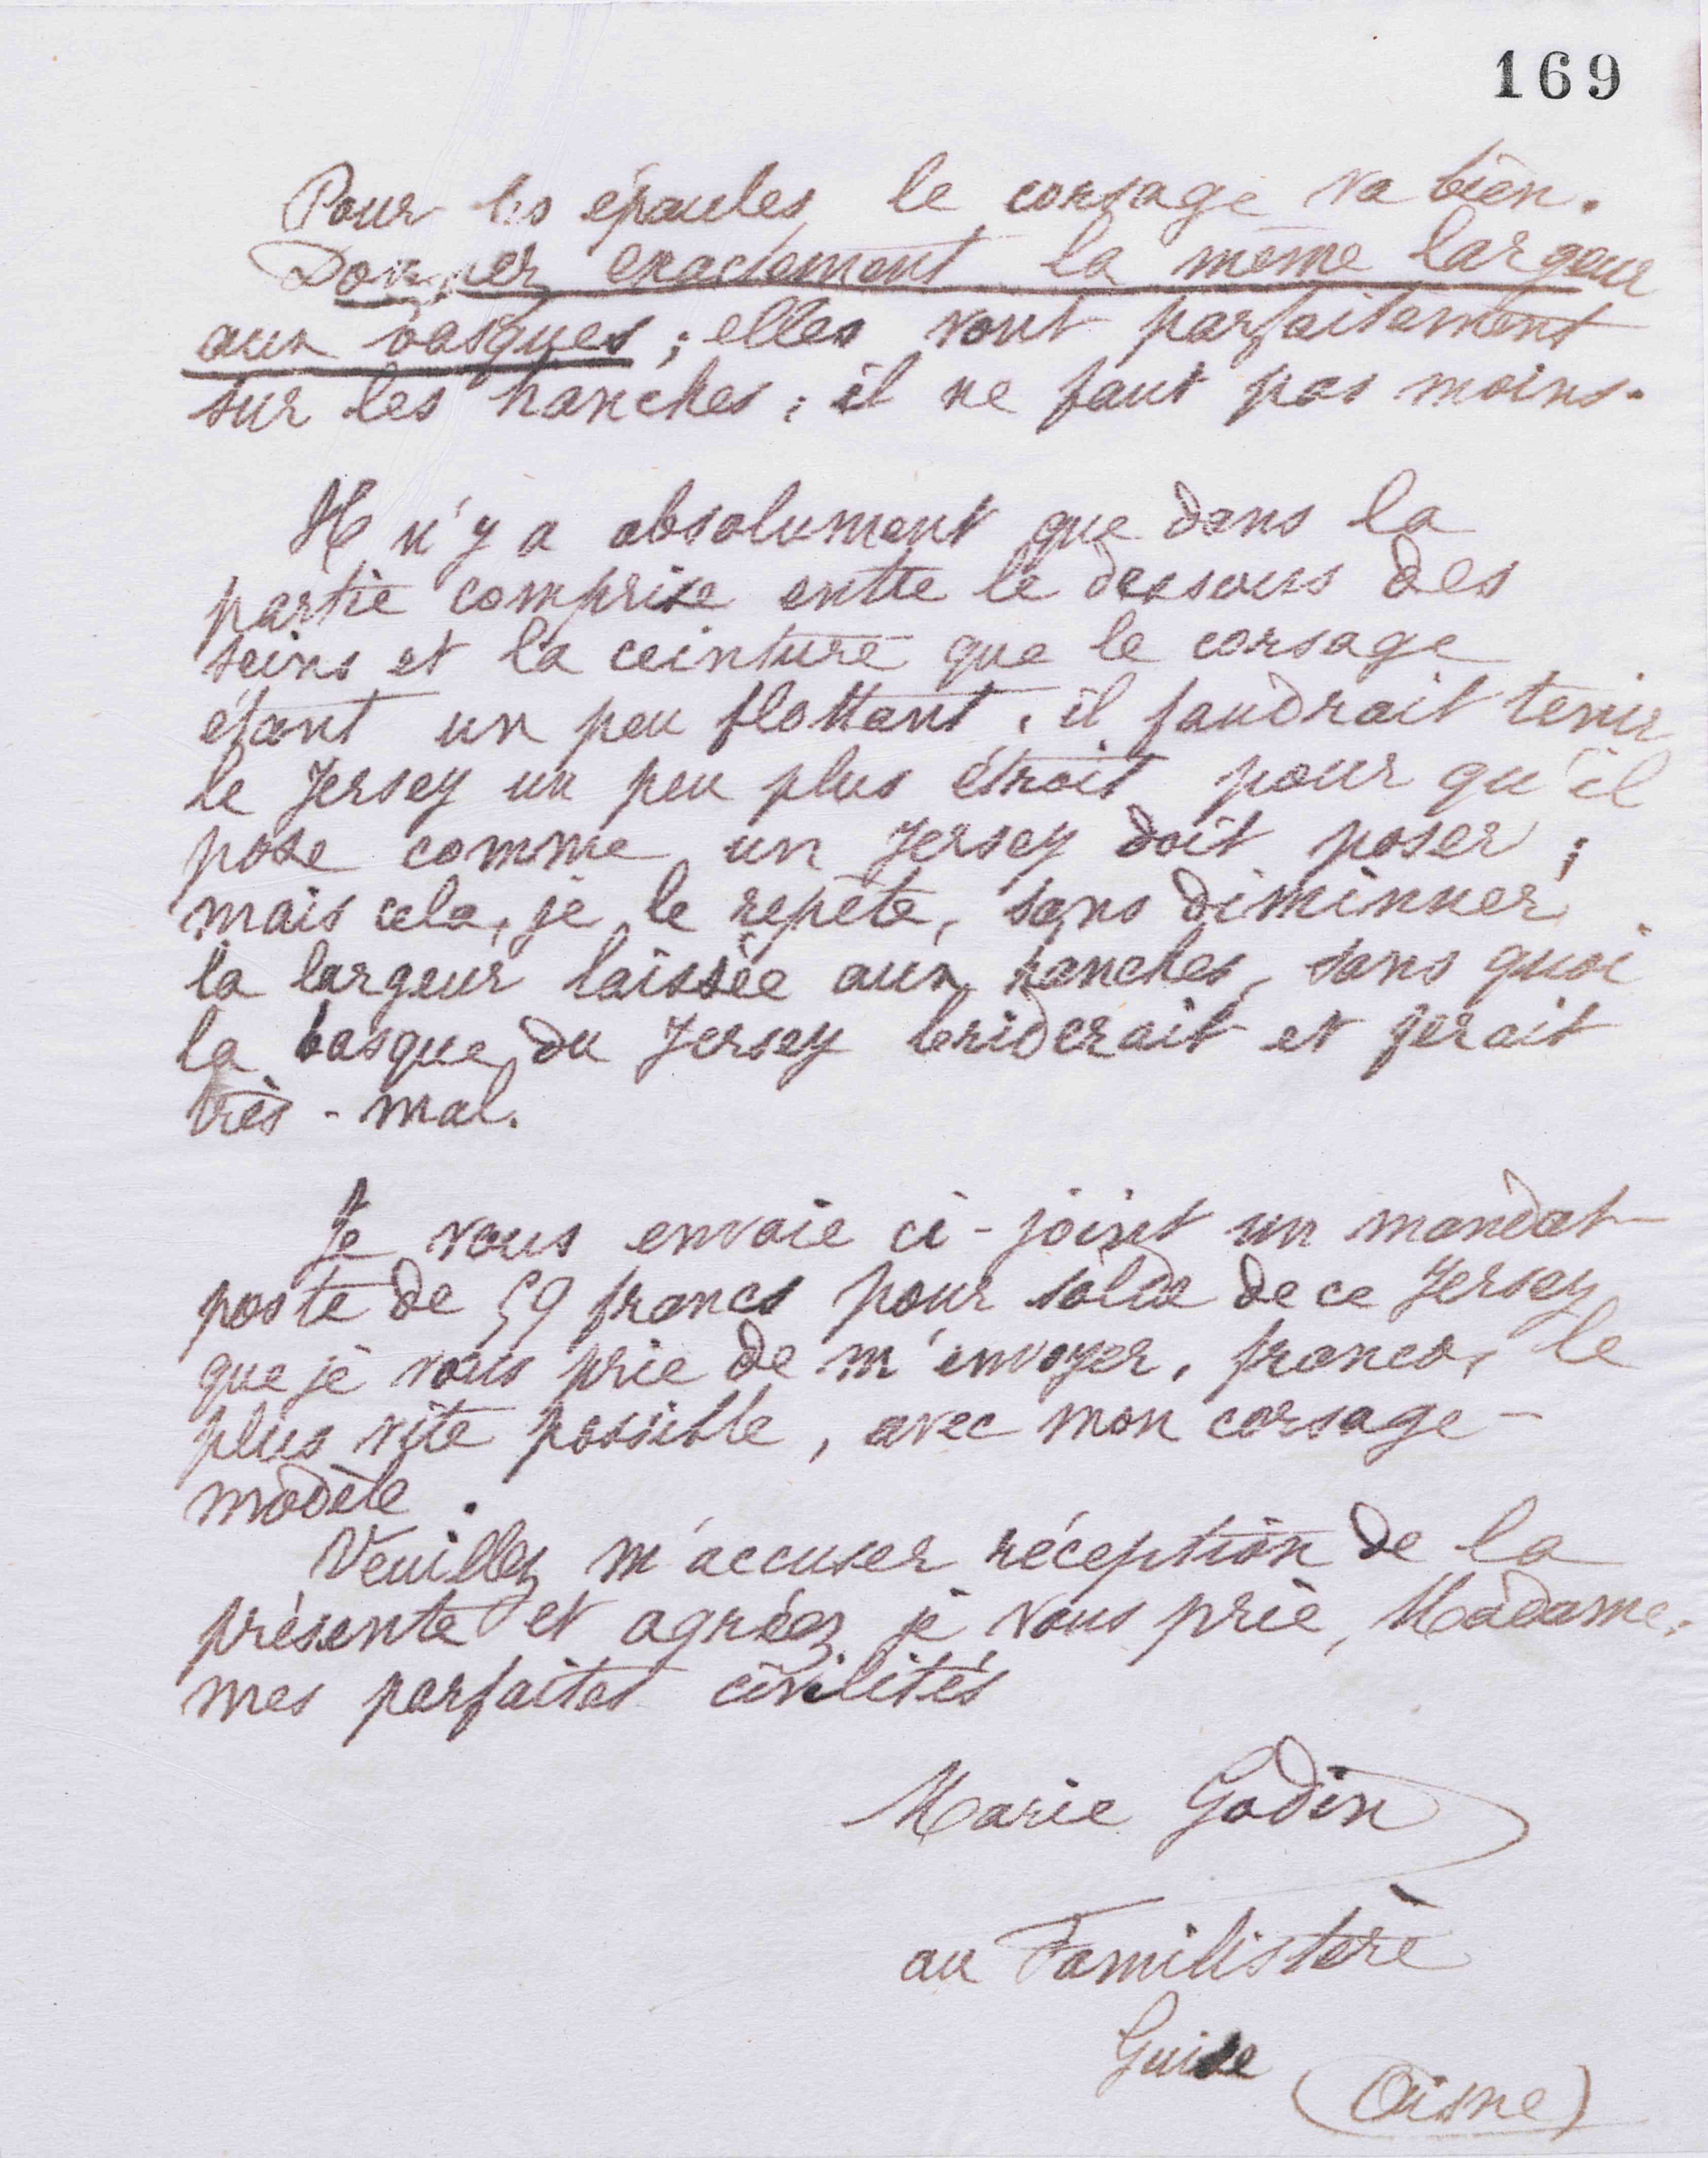 169
Pour les épaules, le corsage va bien.
Donner exactement la même largeur
aux basques ; elles vont parfaitement
sur les hanches ; il ne faut pas moins.
Il n'y a absolument que dans la
partie comprise entre le dessous des
seins et la ceinture que le corsage
étant un peu flottant, il faudrait tenir
le Jersey un peu plus étroit pour qu'il
pose comme un Jersey doit poser ;
mais cela, je le repète, sans diminuer
la largeur laissée aux hanches, sans quoi
la basque du Jersey briderait et ferait
très-mal.
Je vous envoie ci-joint un mandat-
poste de 59 francs pour solde de ce Jersey
que je vous prie de m'envoyer, franco, le
plus vite possible, avec mon corsage-
modèle.
Veuillez m'accuser réception de la
présente et agréez, je vous prie, Madame,
mes parfaites civilités
Marie Godin
au Familistère
Guise (Aisne)